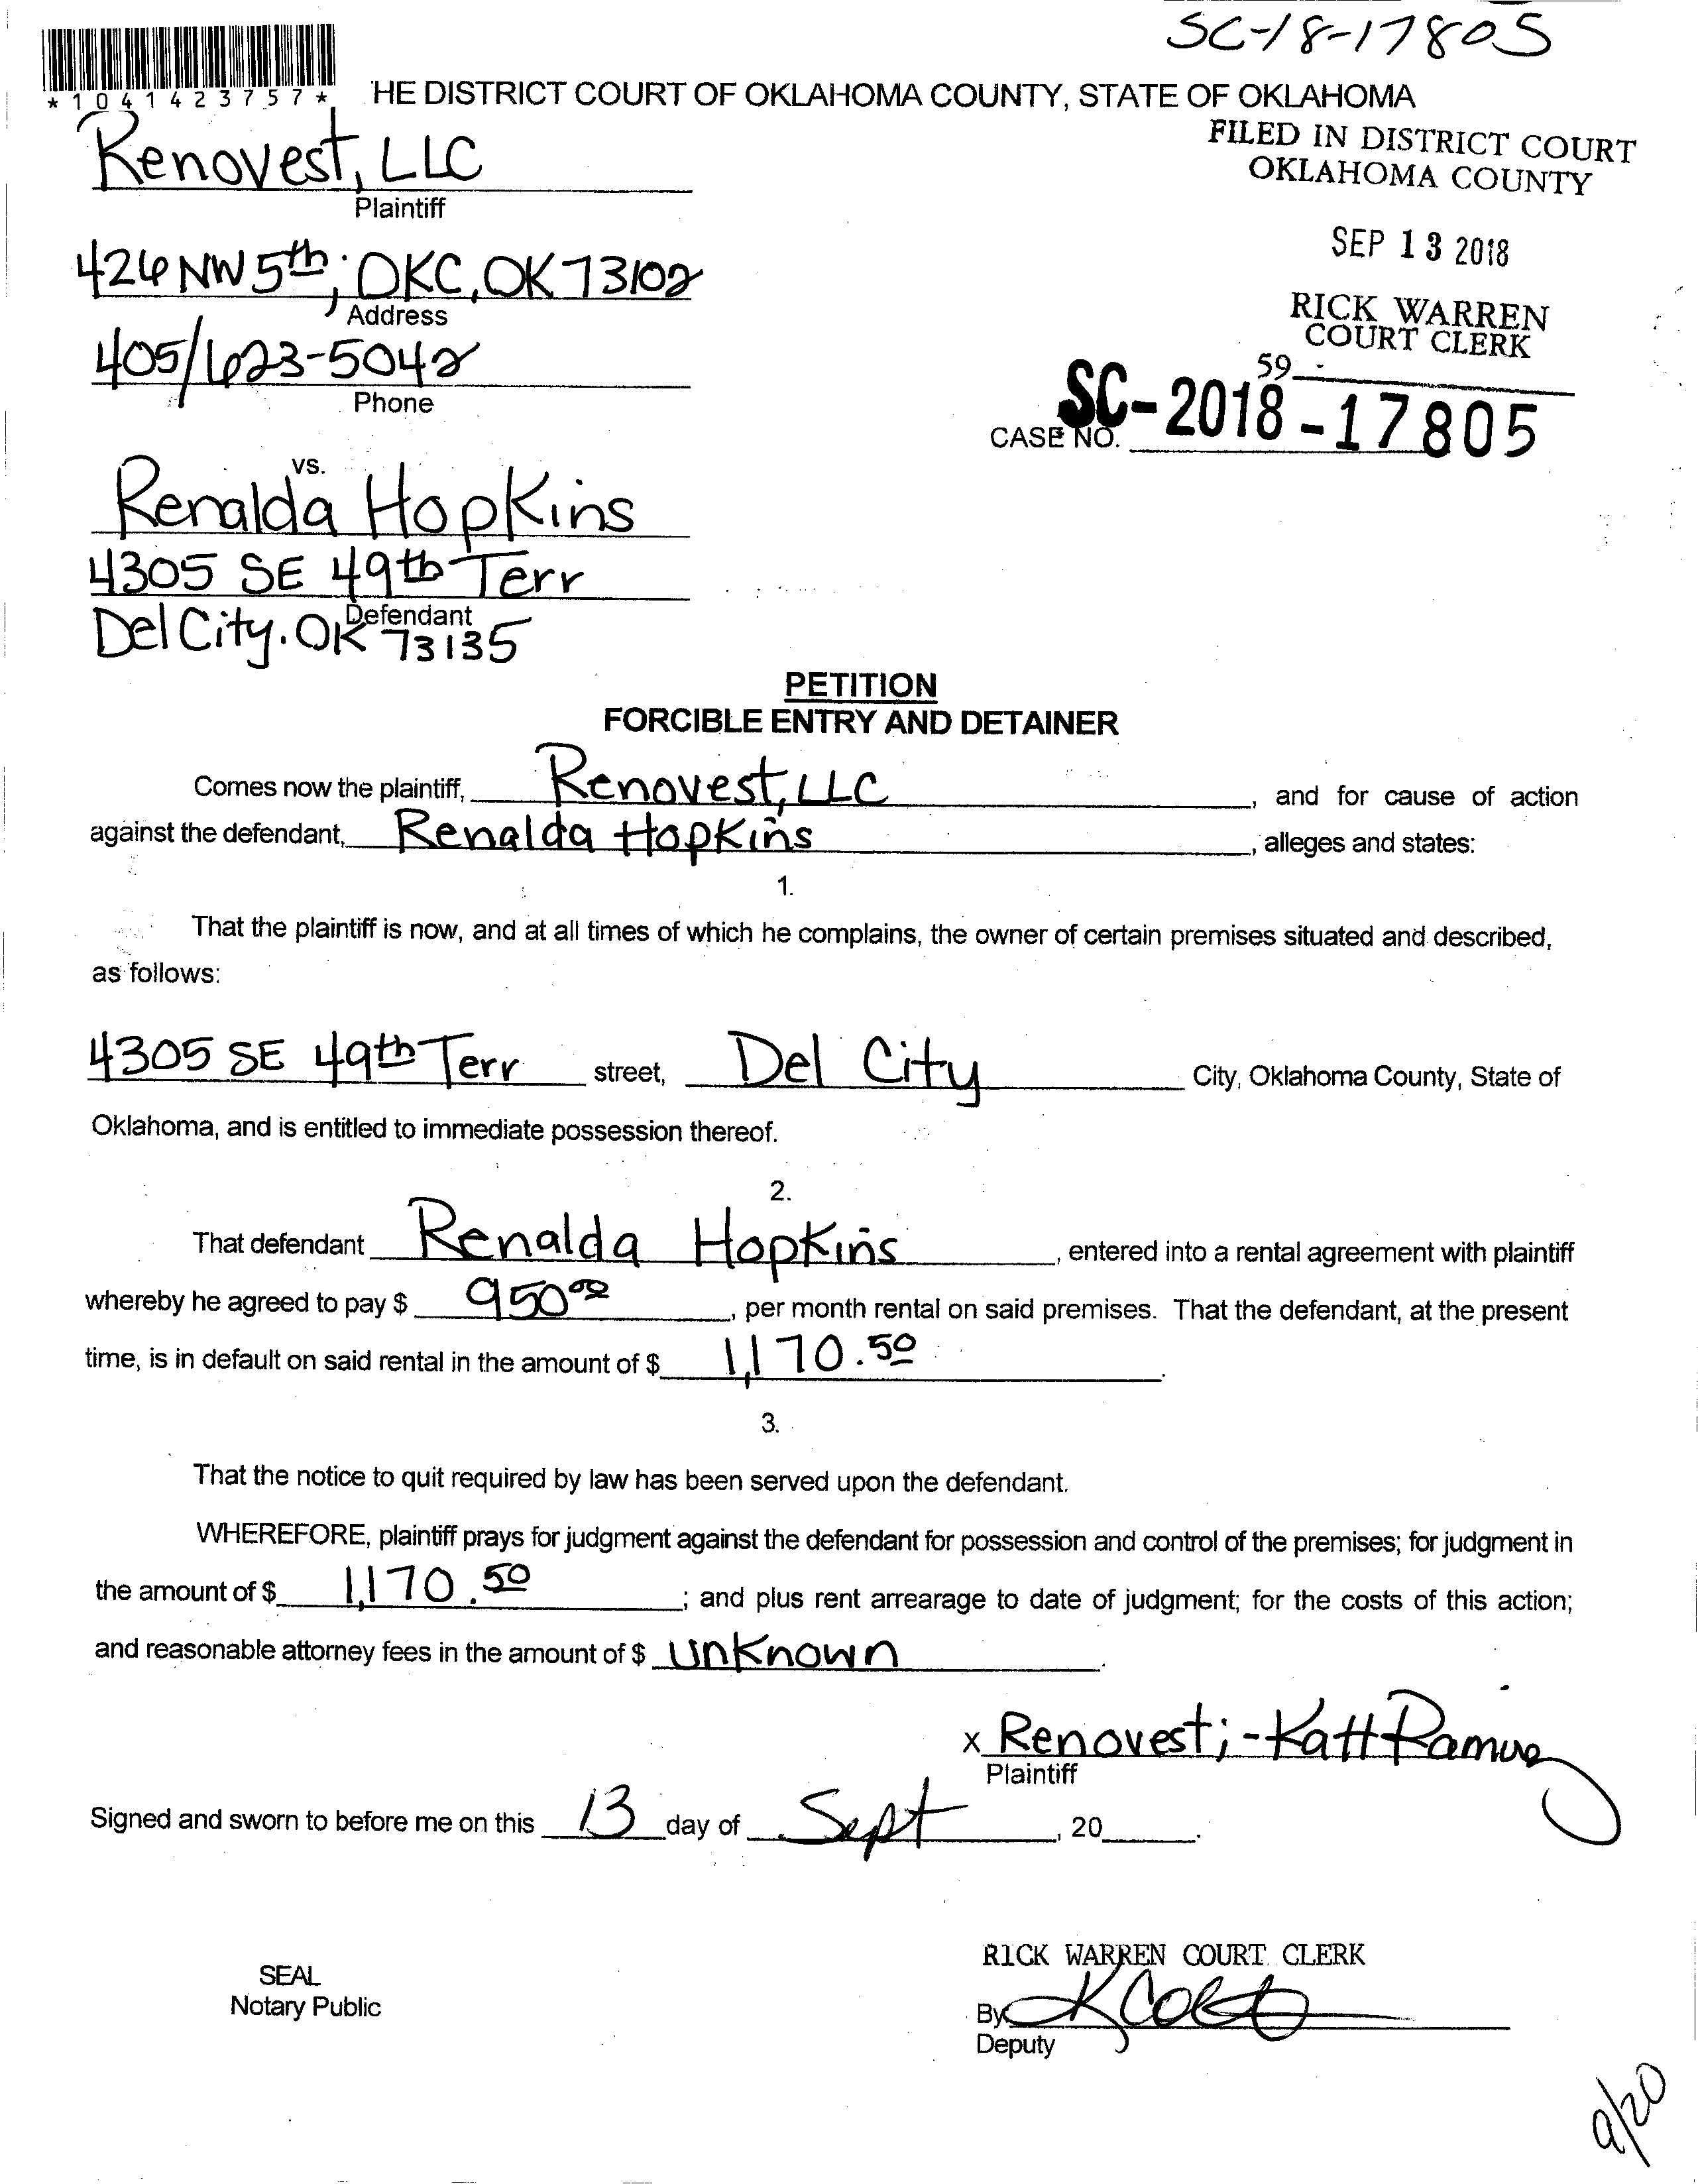 SC-18-17805
*1041423757*
'HE DISTRICT COURT OF OKLAHOMA COUNTY, STATE OF OKLAHOMA
Renovest, LLC
Plaintiff
FILED IN DISTRICT COURT
OKLAHOMA COUNTY
SEP 13 2018
RICK WARREN
COURT CLERK
59
426 NW 5th; OKC, OK 73102
Address
405/623-5042
Phone
CASE NO. SC-2018-17805
vs.
Renalda Hopkins
4305 SE 49th Terr
Defendant
Del City. OK 73135
PETITION
FORCIBLE ENTRY AND DETAINER
Comes now the plaintiff, Renovest, LLC, and for cause of action
against the defendant, Renalda Hopkins, alleges and states:
1.
That the plaintiff is now, and at all times of which he complains, the owner of certain premises situated and described,
as follows:
4305 SE 49th Terr street, Del City City, Oklahoma County, State of
Oklahoma, and is entitled to immediate possession thereof.
2.
That defendant Renalda Hopkins, entered into a rental agreement with plaintiff
whereby he agreed to pay $ 950.00, per month rental on said premises. That the defendant, at the present
time, is in default on said rental in the amount of $ 1,170.50.
3.
That the notice to quit required by law has been served upon the defendant.
WHEREFORE, plaintiff prays for judgment against the defendant for possession and control of the premises; for judgment in
the amount of $ 1,170.50; and plus rent arrearage to date of judgment; for the costs of this action;
and reasonable attorney fees in the amount of $ unknown.
x Renovest; - Katt
Plaintiff
Signed and sworn to before me on this 13 day of Sept, 20____.
SEAL
Notary Public
RICK WARREN COURT CLERK
By
Deputy
9/20